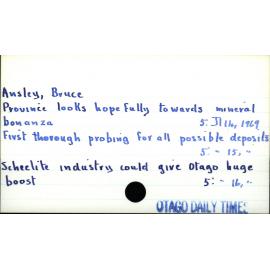 Ansley, Bruce
Province looks hopefully towards mineral
bonanza 5: JI 14, 1969
First thorough probing for all possible deposits
5: " 15, "
Scheelite industry could give Otago huge
boost 5: " 16, "
OTAGO DAILY TIMES